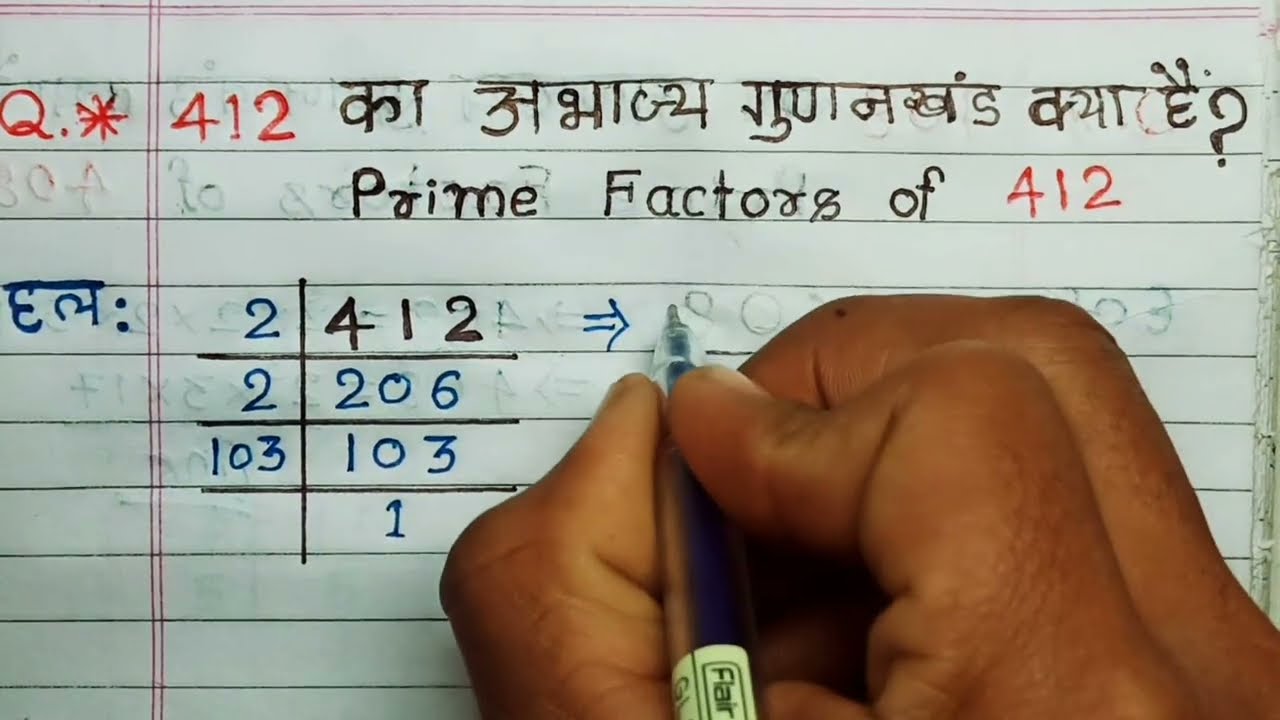 Q.* 412 का अभाज्य गुणनखंड क्या हैं?
Prime Factors of 412
हल:
2 | 412 ⇒
2 | 206
103 | 103
1
Flair